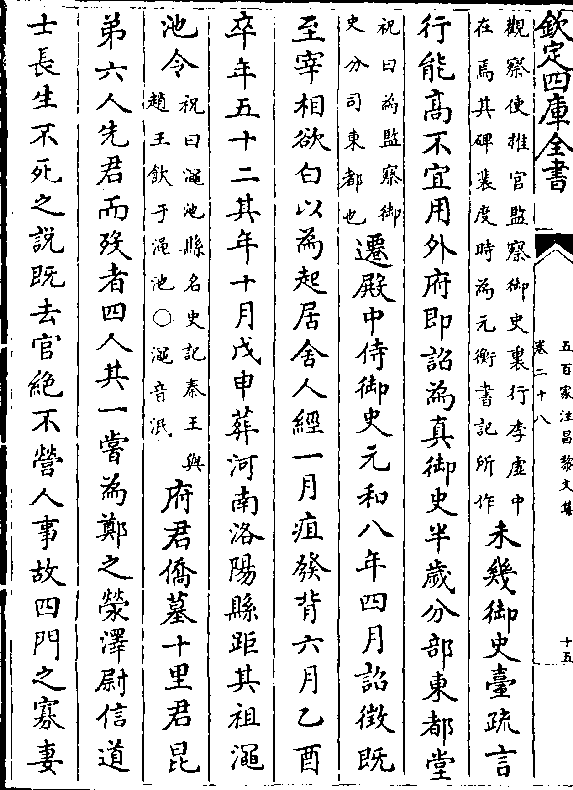 欽定四庫全書
五百家注昌黎文集
卷二十八
十五
觀察使推官監察御史裏行李虚中
在焉其碑裴度時為元衡書記所作
未幾御史臺疏言
行能髙不宜用外府即詔為真御史半歲分部東都堂
祝曰為監察御
史分司東都也
遷殿中侍御史元和八年四月詔徴既
至宰相欲白以為起居舍人經一月疽發背六月乙酉
卒年五十二其年十月戊申葬河南洛陽縣距其祖澠
池令
祝曰澠池縣名史記秦王與
趙王飲于澠池○澠音泯
府君僑墓十里君昆
弟六人先君而殁者四人其一嘗為鄭之滎澤尉信道
士長生不死之説既去官絶不營人事故四門之寡妻